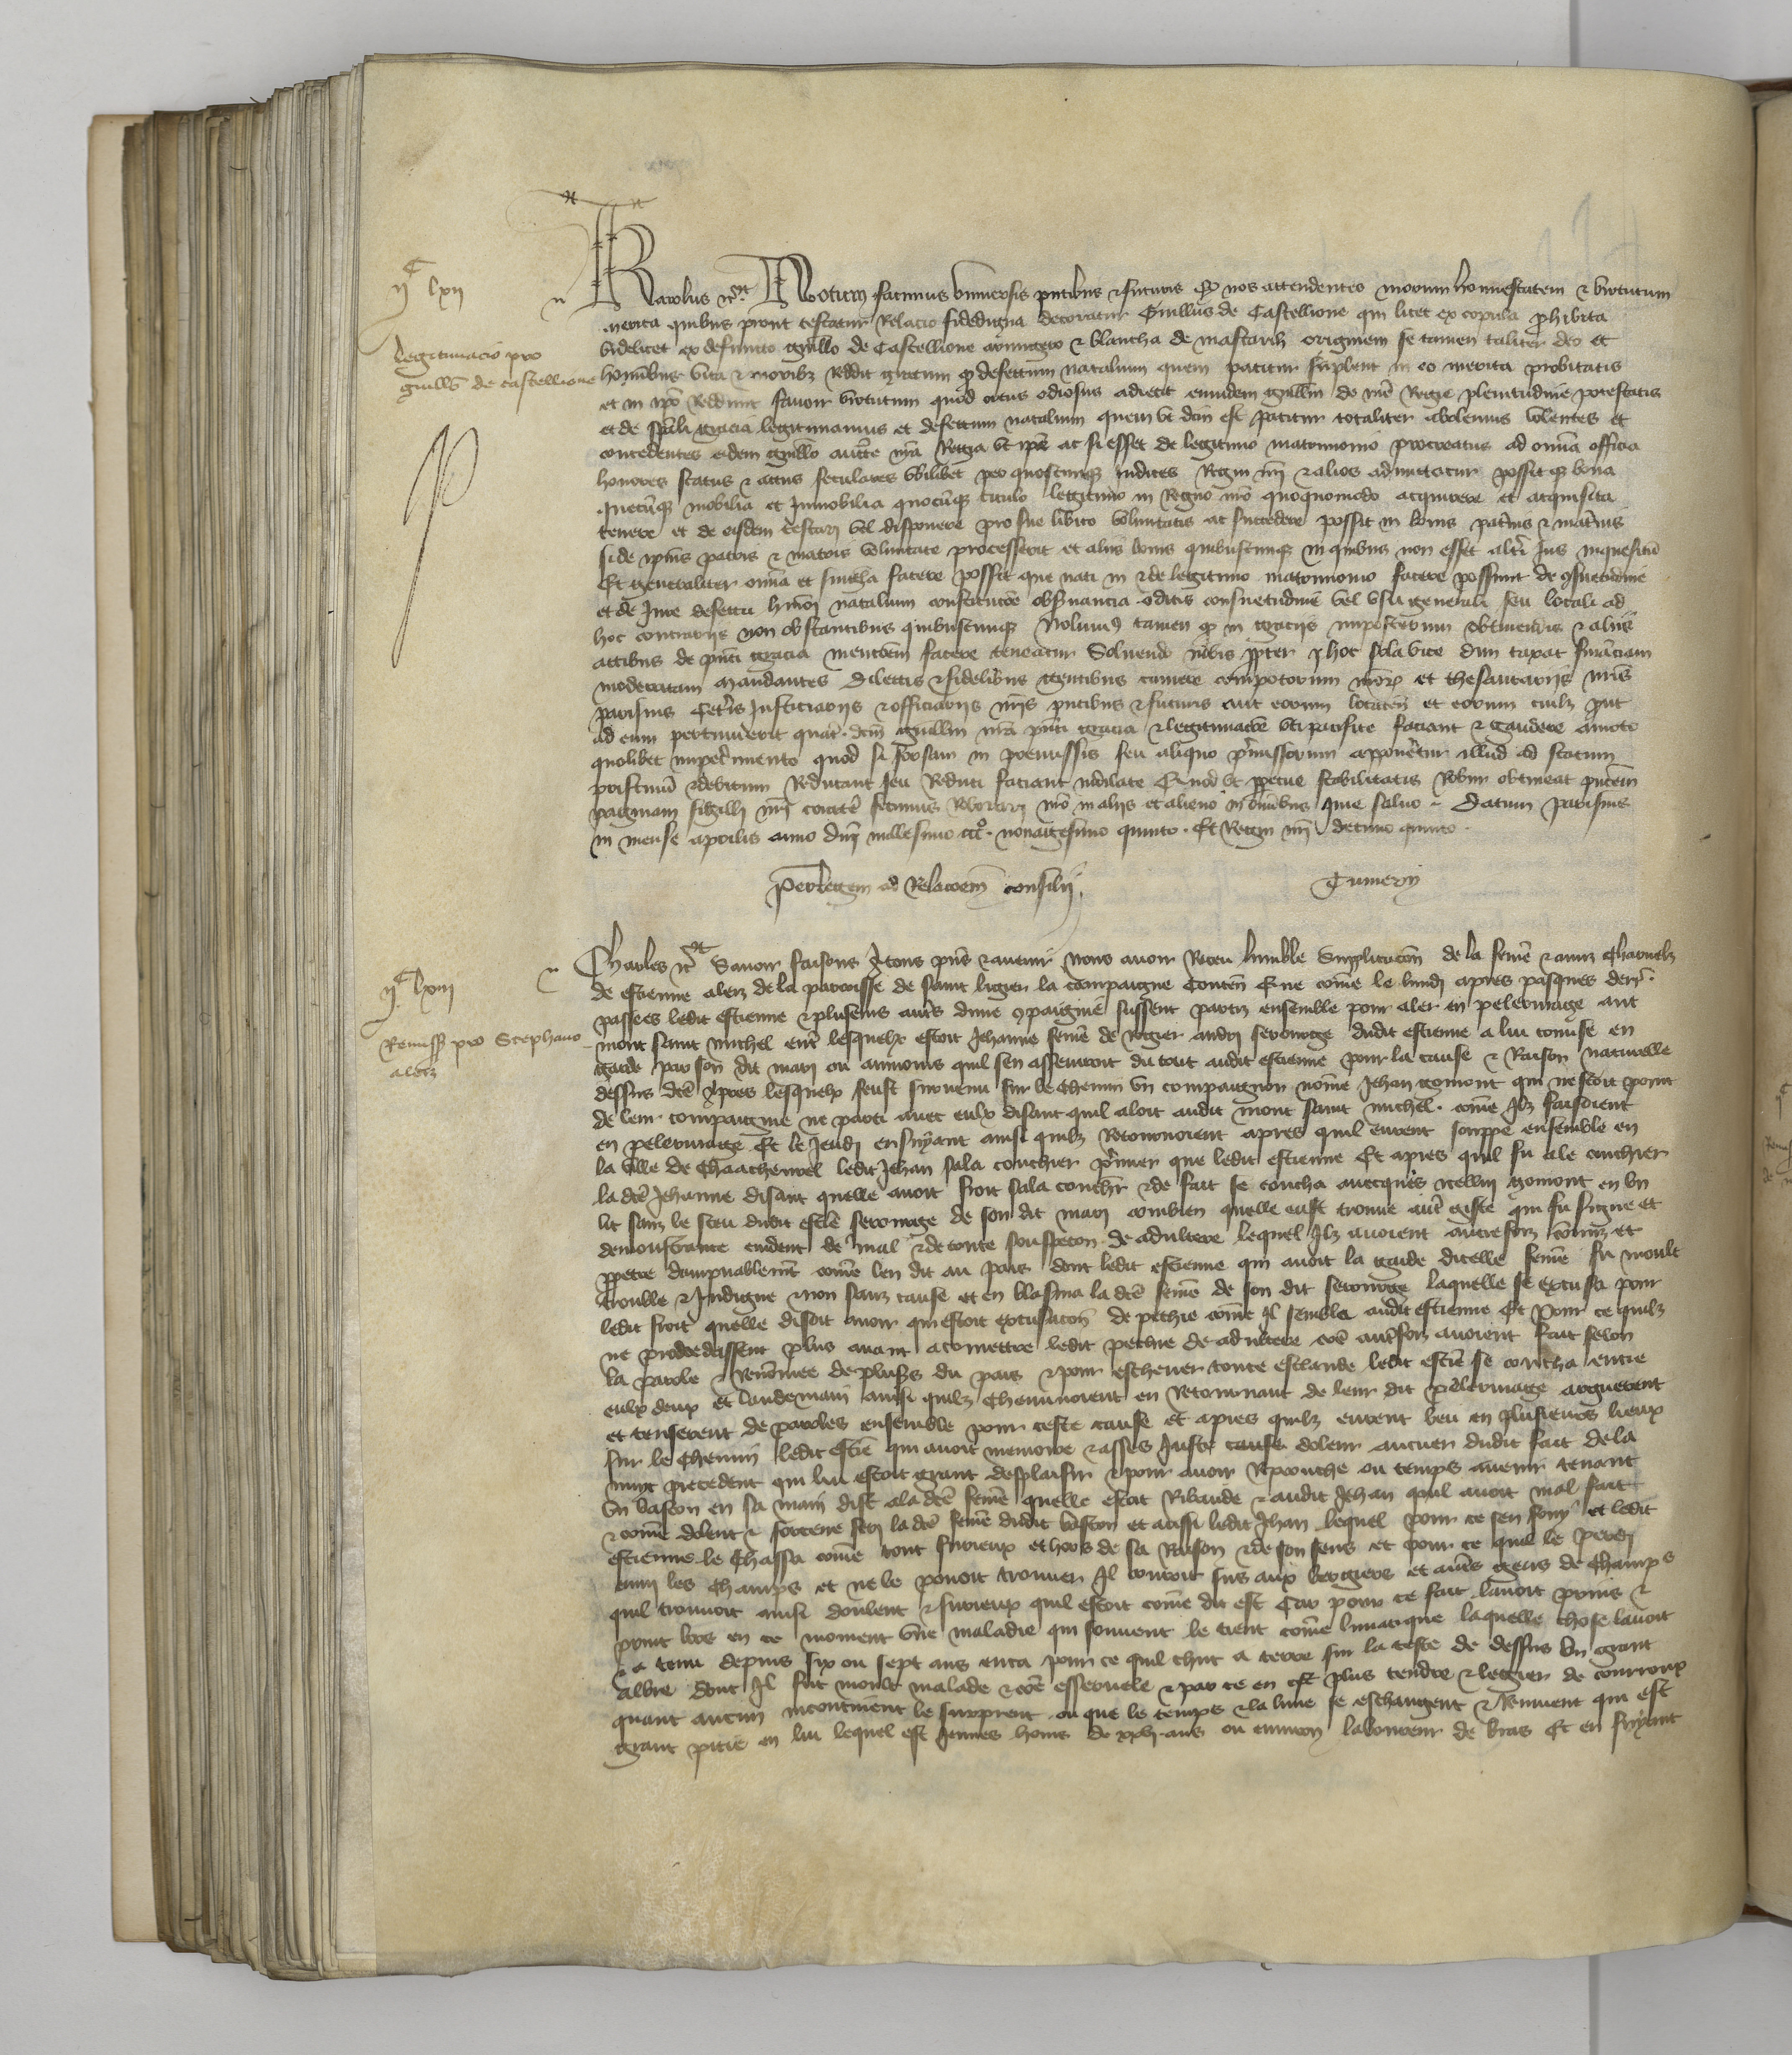 IIc lxii
Legitimacio pro
guillo de castellione
Karolus etc. Notum facimus universis pntibus et futuris Qd nos attendentes morum honnestatem et virtutum
merita quibus prout testatur Relacio fidedigna decoratur Guillus de Castellione qui licet ex copula prohibita
videlicet ex defuncto guillo de Castellione armigero et blancha de mascarih originem se tamen taliter deo et
hominibus vita et moribz reddit gratum qd defectum natalium quem patitur suplent in eo merita probitatis
et in ipo Reddunt favorem virtutum quod ortus odiosus adiecit eumdem guillm de nre Regie plenitudine potestatis
et de spali gracia legitimamus et defectum natalium quem ut dcm est patitur totaliter abolemus volentes et
concedentes eidem guillo aucte nra Regia ut ipe ac si esset de legitimo matrimonio procreatus ad omia officia
honores status et actus seculares ubilibet per quoscunqz iudices Regni nri et alios admittatur possitqz bona
quecunqz mobilia et Inmobilia quocunqz titulo legitimo in Regno nro quoquomodo acquirere et acquisita
tenere et de eisdem testari vel disponere pro sue libito voluntatis ac succedere possit in bonis patnis et matnis
si de ipius patris et matris voluntate processerit et aliis bonis quibuscunqz in quibus non esset altri Ius inquesitu
Et generaliter omia et singla facere possit que nati in et de legitimo matrimonio facere possunt de consuetudine
et de Iure defectu hmoi natalium constitucoe observancia edictis consuetudine vel usu generali seu locali ad
hoc contrariis non obstantibus quibuscunqz Volumus tamen qd in graciis impostorum obtinendis et aliis
actibus de pnti gracia mencoem facere teneatur Solvendo nobis ppter hoc sola vice dun taxat financiam
moderatam Mandantes Dilectis et fidelibus gentibus camere compotorum nror et thesaurariis nris
parisius Ceteris Iusticiariis et officiariis nris pntibus et futuris aut eorum locaten et eorum cuilz put
ad eum pertinuerit quatn dcm guillm nra pnti gracia et legitimacoe uti pacifice faciant et gaudere amoto
quolibet impedimento quod si forsan in premissis seu aliquo premissorum apponetur illud ad statum
pristinu et debitum Reducant seu Reduci faciant indilate Quod ut ppetue stabilitatis Robur obtineat pntem
paginam sigilli nri caractere fecimus Roborari nro in aliis et alieno in omibus Iure salvo Datum parisius
in mense aprilis anno dni millesimo ccco nonagesimo quinto Et Regni nri decimo quinto
Per Regem ad Relacoem consilii
Gumery
IIc lxiii
Remiss pro Stephano
alerz
Charles etc. Savoir faisons A tous pns et avenir nous avoir Receu humble Supplicacon de la feme et amis Charnelz
de estienne alerz de la parroisse de saint ligier la compaigne Conten Que come le lundi apres pasques derr
passees ledit estienne et pluseurs autrs dune compaignie fussent partiz ensemble pour aler en pelerinage aut
mont saint michel entre lesquelx estoit Jehanne feme de Rogier andry serourge dudit estienne a lui comise en
garde par son dit mary ou aumoins quil sen asseuroit du tout audit estienne pour la cause et Raison naturelle
dessus dce Apres lesquelx feust survenu sur le chemin un compaignon nome Jehan gomont qui nestoit point
de leur compaignie ne parti avec eulx disant quil aloit audit mont saint michel come Ilz faisoient
en pelerinage Et le Jeudi ensuyant ainsi quilz Retournoient apres quil eurent souppe ensemble en
la ville de ledit Jehan sala couchier primier que ledit estienne Et apres quil fu ale couchier
la dce Jehanne disant quelle avoit froit sala couchr et de fait se coucha avecques icellui gomont en un
lit sanz le sceu dudit estie serourge de son dit mary combien quelle eust trouve autre giste qui fu signe et
demonstrance evident de mal et de toute souspecon de adultere lequel Ilz avoient autresfoiz comiz et
ppetre dampnablemt come len dit au pais dont ledit estienne qui avoit la garde dicelle feme fu moult
trouble et Indigne et non sanz cause et en blasma la dce feme de son dit serourge laquelle se excusa pour
ledit froit quelle disoit avoir qui estoit excusacon de pechie come Il sembla audit estienne Et Pour ce quilz
ne procedassent plus avant a comettre ledit pechie de adultere coe autrefoiz avoient fait selon
la parole et Renomee de plusrs du pais et pour eschever toute esclande ledit estie se coucha entre
eulx deux Et landemain ainsi quilz cheminoient en Retournant de leur dit pelerinage arguerent
et tenserent de paroles ensemble pour ceste cause et apres quilz eurent beu en plusieurs lieux
sur le chemin ledit estie qui avoit memoire et asses Juste cause doleur aucuer dudit fait de la
nuyt precedent qui lui estoit grant desplaisir et pour avoir Reprouche ou temps avenir tenant
un baston en sa main dist a la dce feme quelle estoit Ribaude et audit Jehan quil avoit mal fait
et come dolent et forcene feri la dce feme dudit baston et aussi ledit Jehan lequel pour ce sen fouy et ledit
estienne le chassa come tout furieux et hors de sa Raison et de son sens et pour ce quil le perdi
emmi les champs et ne le povoit trouver Il couroit sus aux bergiers et autrs gens de champs
quil trouvoit ainsi doulent et furieux quil estoit come dit est Car pour ce fait lavoit prins et
print lors en ce moment une maladie qui souvent le tient come lunatique laquelle chose lavoit
et a tenu depuis six ou sept ans enca pour ce quil chut a terre sur la teste de dessus un grant
albre dont Il fut moult malade et coe esservele et par ce en est plus tendre et legier de courroux
quant aucun incontinent le surprent ou que le temps et la lune se eschangent et Remuent qui est
grant pitie en lui lequel est Jeunes homs de xxv ans ou environ laboureur de bras Et en suyant